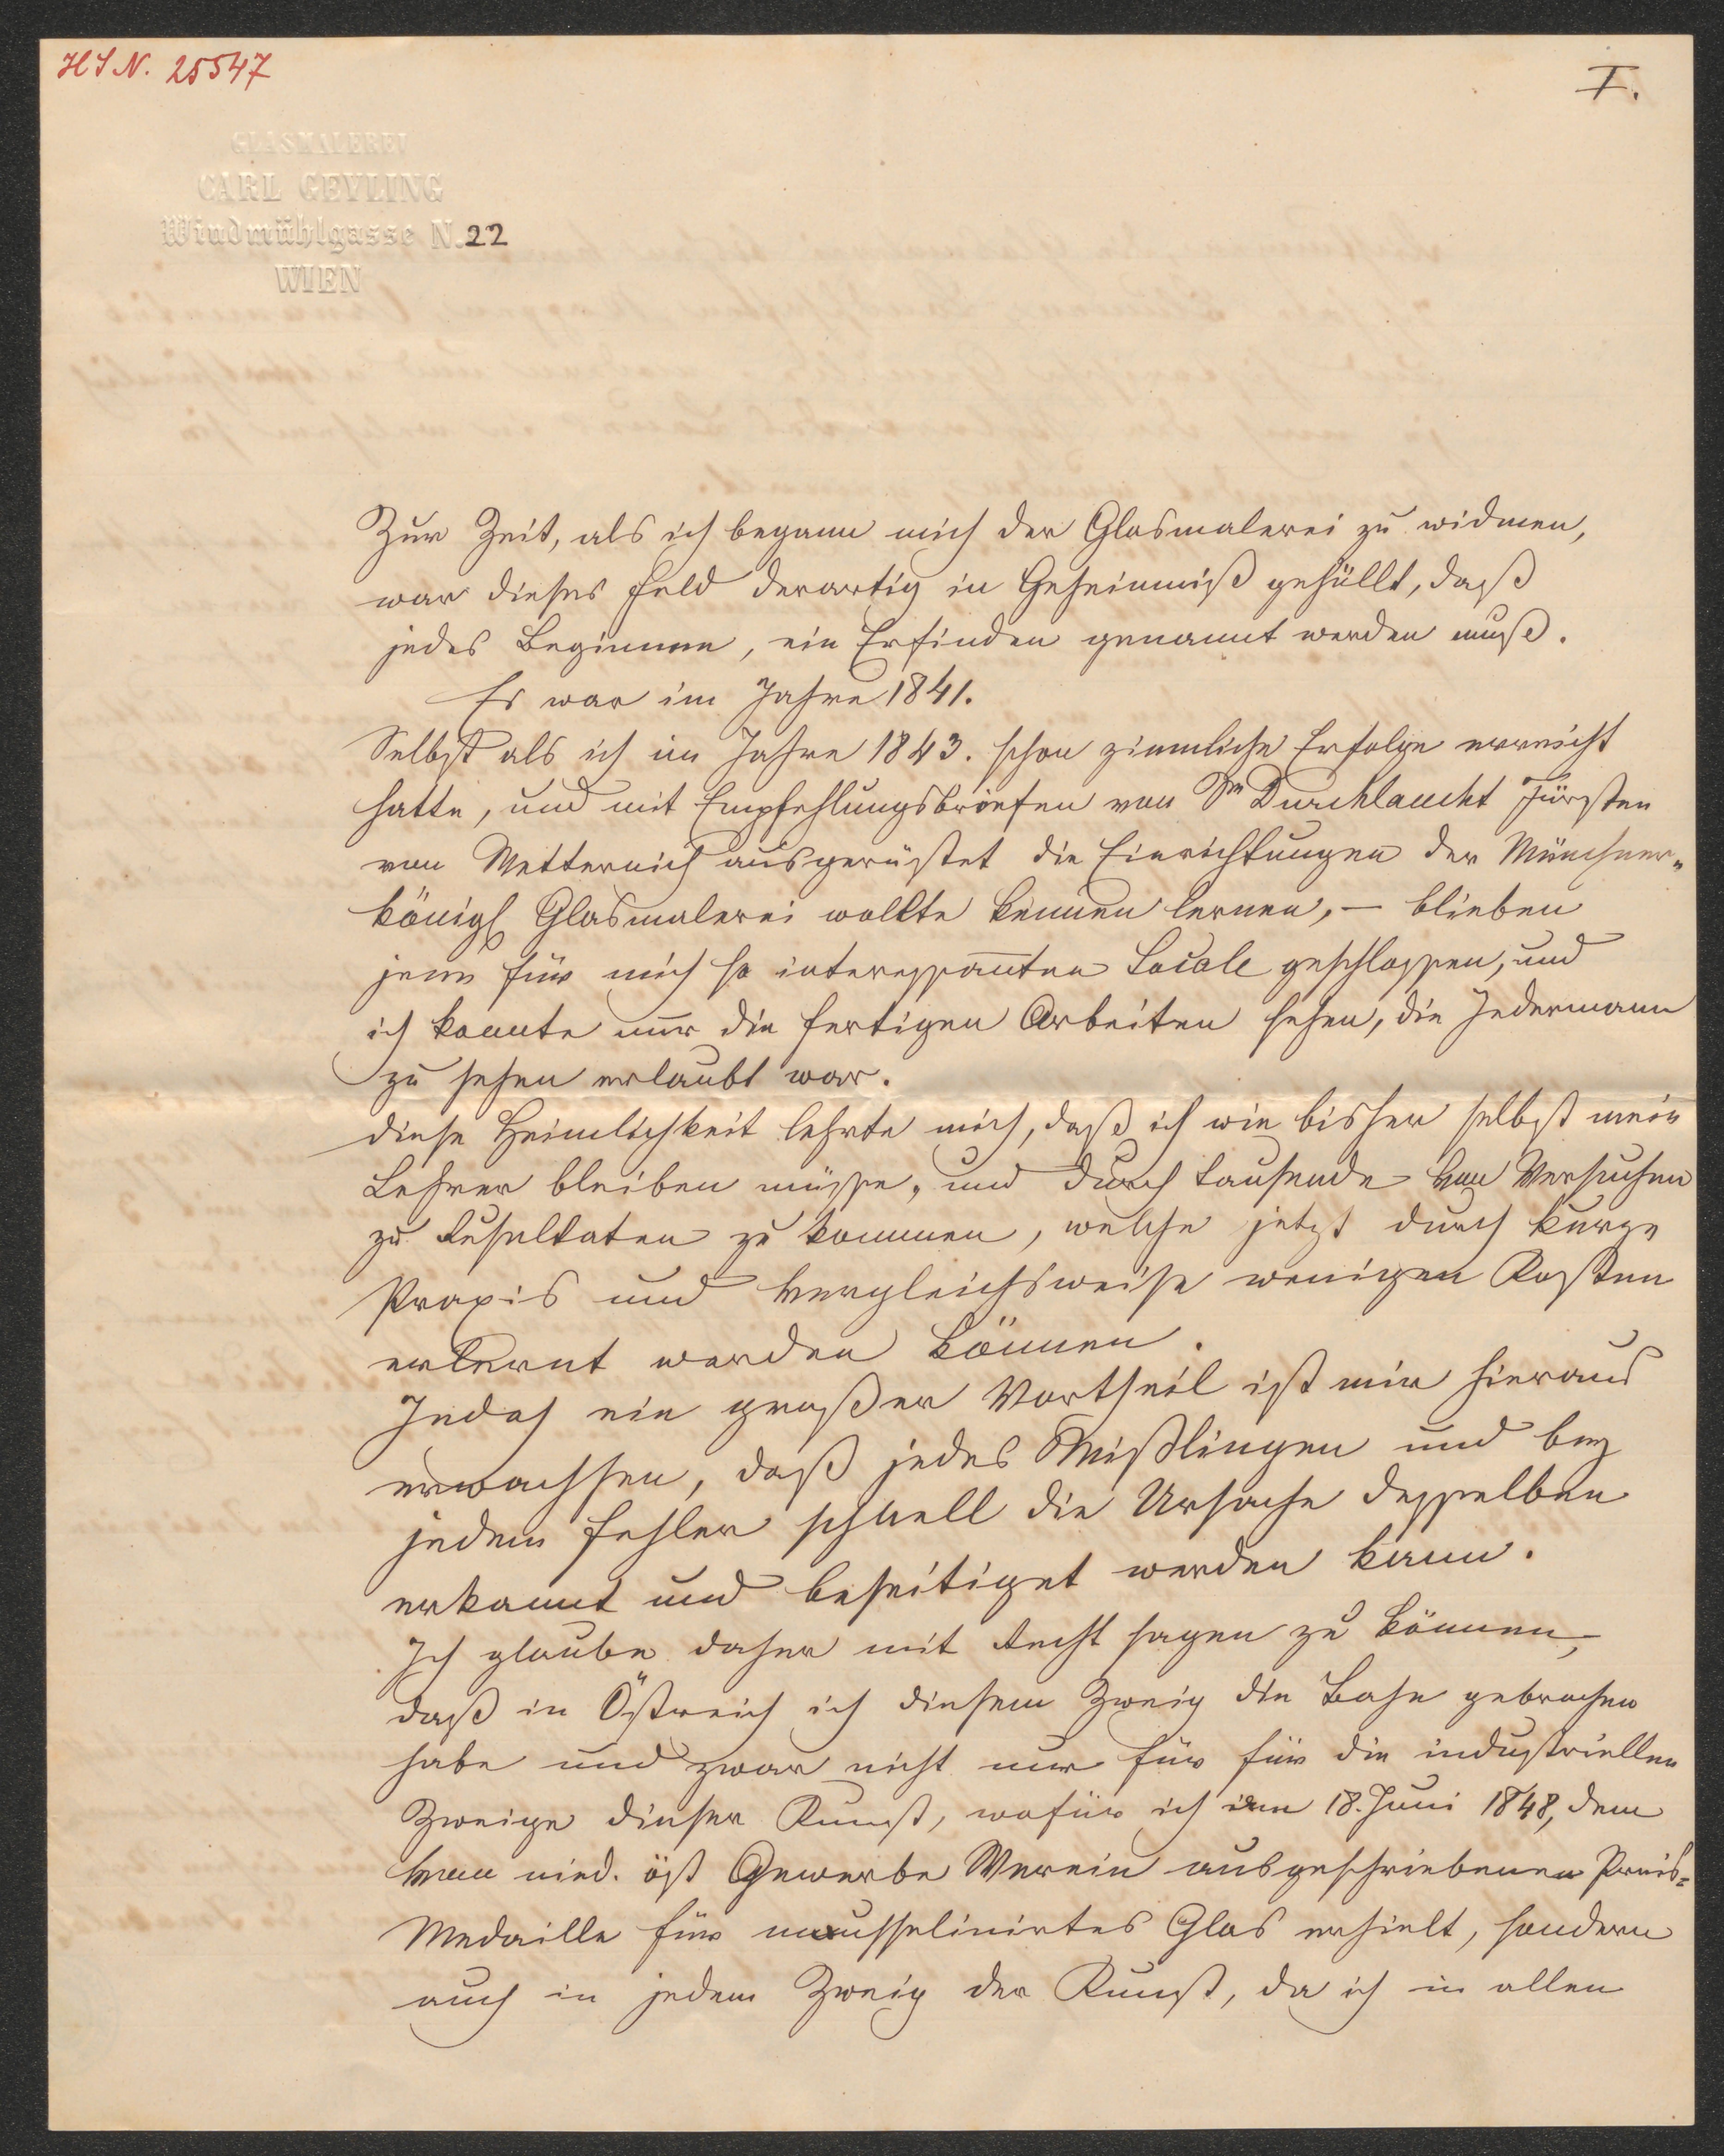 HIN. 25547
I.
GLASMALEREI
CARL GEYLING
Windmühlgasse N. 22
WIEN
Zur Zeit, als ich begann mich der Glasmalerei zu widmen,
war dieses Feld derartig in Geheimniß gehüllt, daß
jedes Beginnen, ein Erfinden genannt werden muß.
Es war im Jahre 1841.
Selbst als ich im Jahre 1843. schon ziemliche Erfolge erreicht
hatte, und mit Empfehlungsbriefen von Sr Durchlaucht Fürsten
von Metternich ausgerüstet die Einrichtungen der Münchner-
königl Glasmalerei wollte kennen lernen, – blieben
jene für mich so interessanten Locale geschlossen, und
ich konnte nur die fertigen Arbeiten sehen, die Jedermann
zu sehen erlaubt war.
Diese Heimlichkeit lehrte mich, daß ich wie bisher selbst mein
Lehrer bleiben müsse, und durch tausende von Versuchen
zu Resultaten zu kommen, welche jetzt durch kurze
Praxis und vergleichsweise wenigen Kosten
erlernt werden können.
Jedoch ein großer Vortheil ist mir hieraus
erwachsen, daß jedes Mißlingen und bey
jedem Fehler schnell die Ursache desselben
erkannt und beseitiget werden kann.
Ich glaube daher mit Recht sagen zu können,
daß in Östreich ich diesem Zweig die Bahn gebrochen
habe und zwar nicht nur für für die industriellen
Zweige dieser Kunst, wofür ich den 18. Juni 1848, dem
vom nied. öst Gewerbe Verein ausgeschriebenen Preis=
Medaille für mousselinirtes Glas erhielt, sondern
auch in jedem Zweig der Kunst, da ich in allen